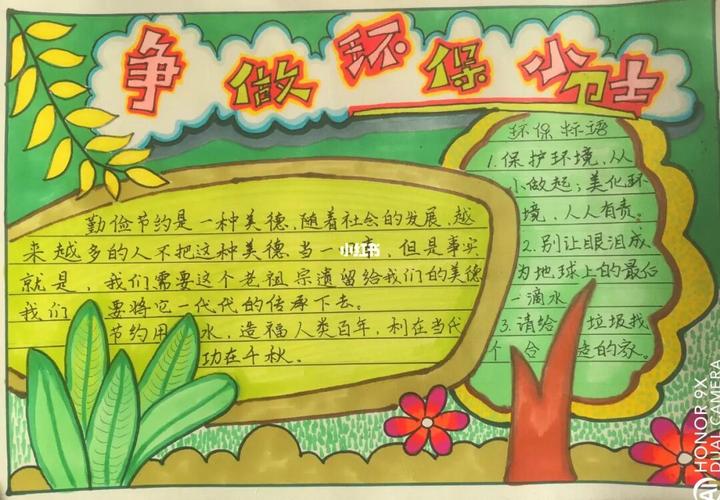 争做环保小卫士
勤俭节约是一种美德，随着社会的发展，越
来越多的人不把这种美德当一事，但是事实
就是，我们需要这个老祖宗遗留给我们的美德
我们要将它一代代的传承下去。
节约用水，造福人类百年，利在当代
功在千秋。
小红书
环保标语
1.保护环境，从
小做起；美化环
境，人人有责。
2.别让眼泪成
为地球上的最后
一滴水
3.请给垃圾找
个合适的家。
HONOR 9X
DUAL CAMERA